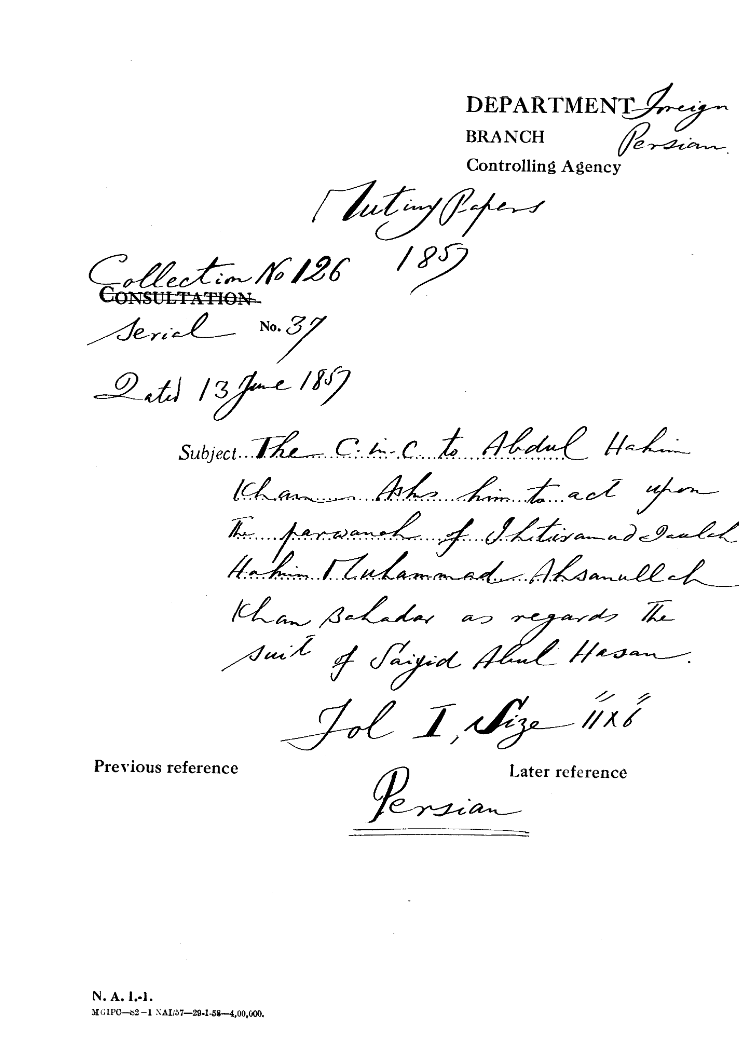 DEPARTMENT Foreign
BRANCH Persian.
Controlling Agency
Mutiny Papers
1857
Collection No 126
CONSULTATION
Serial No. 37
Dated 13 June 1857
Subject The C-in-C to Abdul Hakim
Khan Asks him to act upon
the parwanah of Ihtiramud Daulah
Hakim Muhammad Ahsanullah
Khan Bahadar as regards the
suit of Saiyid Abul Hasan.
Fol I, Size 11" x 6"
Previous reference
Later reference
Persian
N. A. I.-1.
MGIPC—82—1 NAI/57—29-1-58—4,00,000.